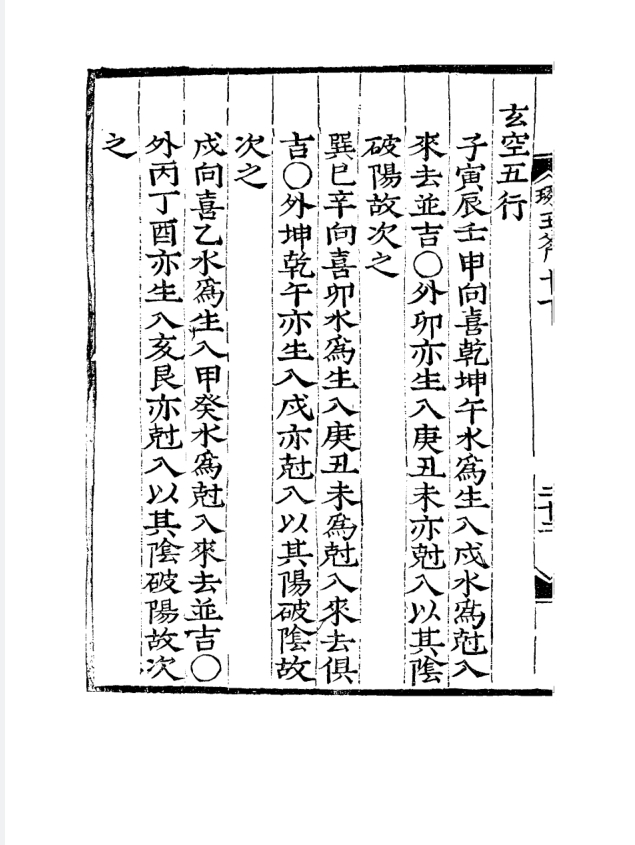 玄空五行
子寅辰壬申向喜乾坤午水爲生入戍水爲尅入
來去並吉○外卯亦生入庚丑未亦尅入以其陰
破陽故次之
巽巳辛向喜卯水爲生入庚丑未爲尅入來去俱
吉○外坤乾午亦生入戍亦尅入以其陽破陰故
次之
戍向喜乙水爲生入甲癸水爲尅入來去並吉○
外丙丁酉亦生入亥艮亦尅入以其陰破陽故次
之